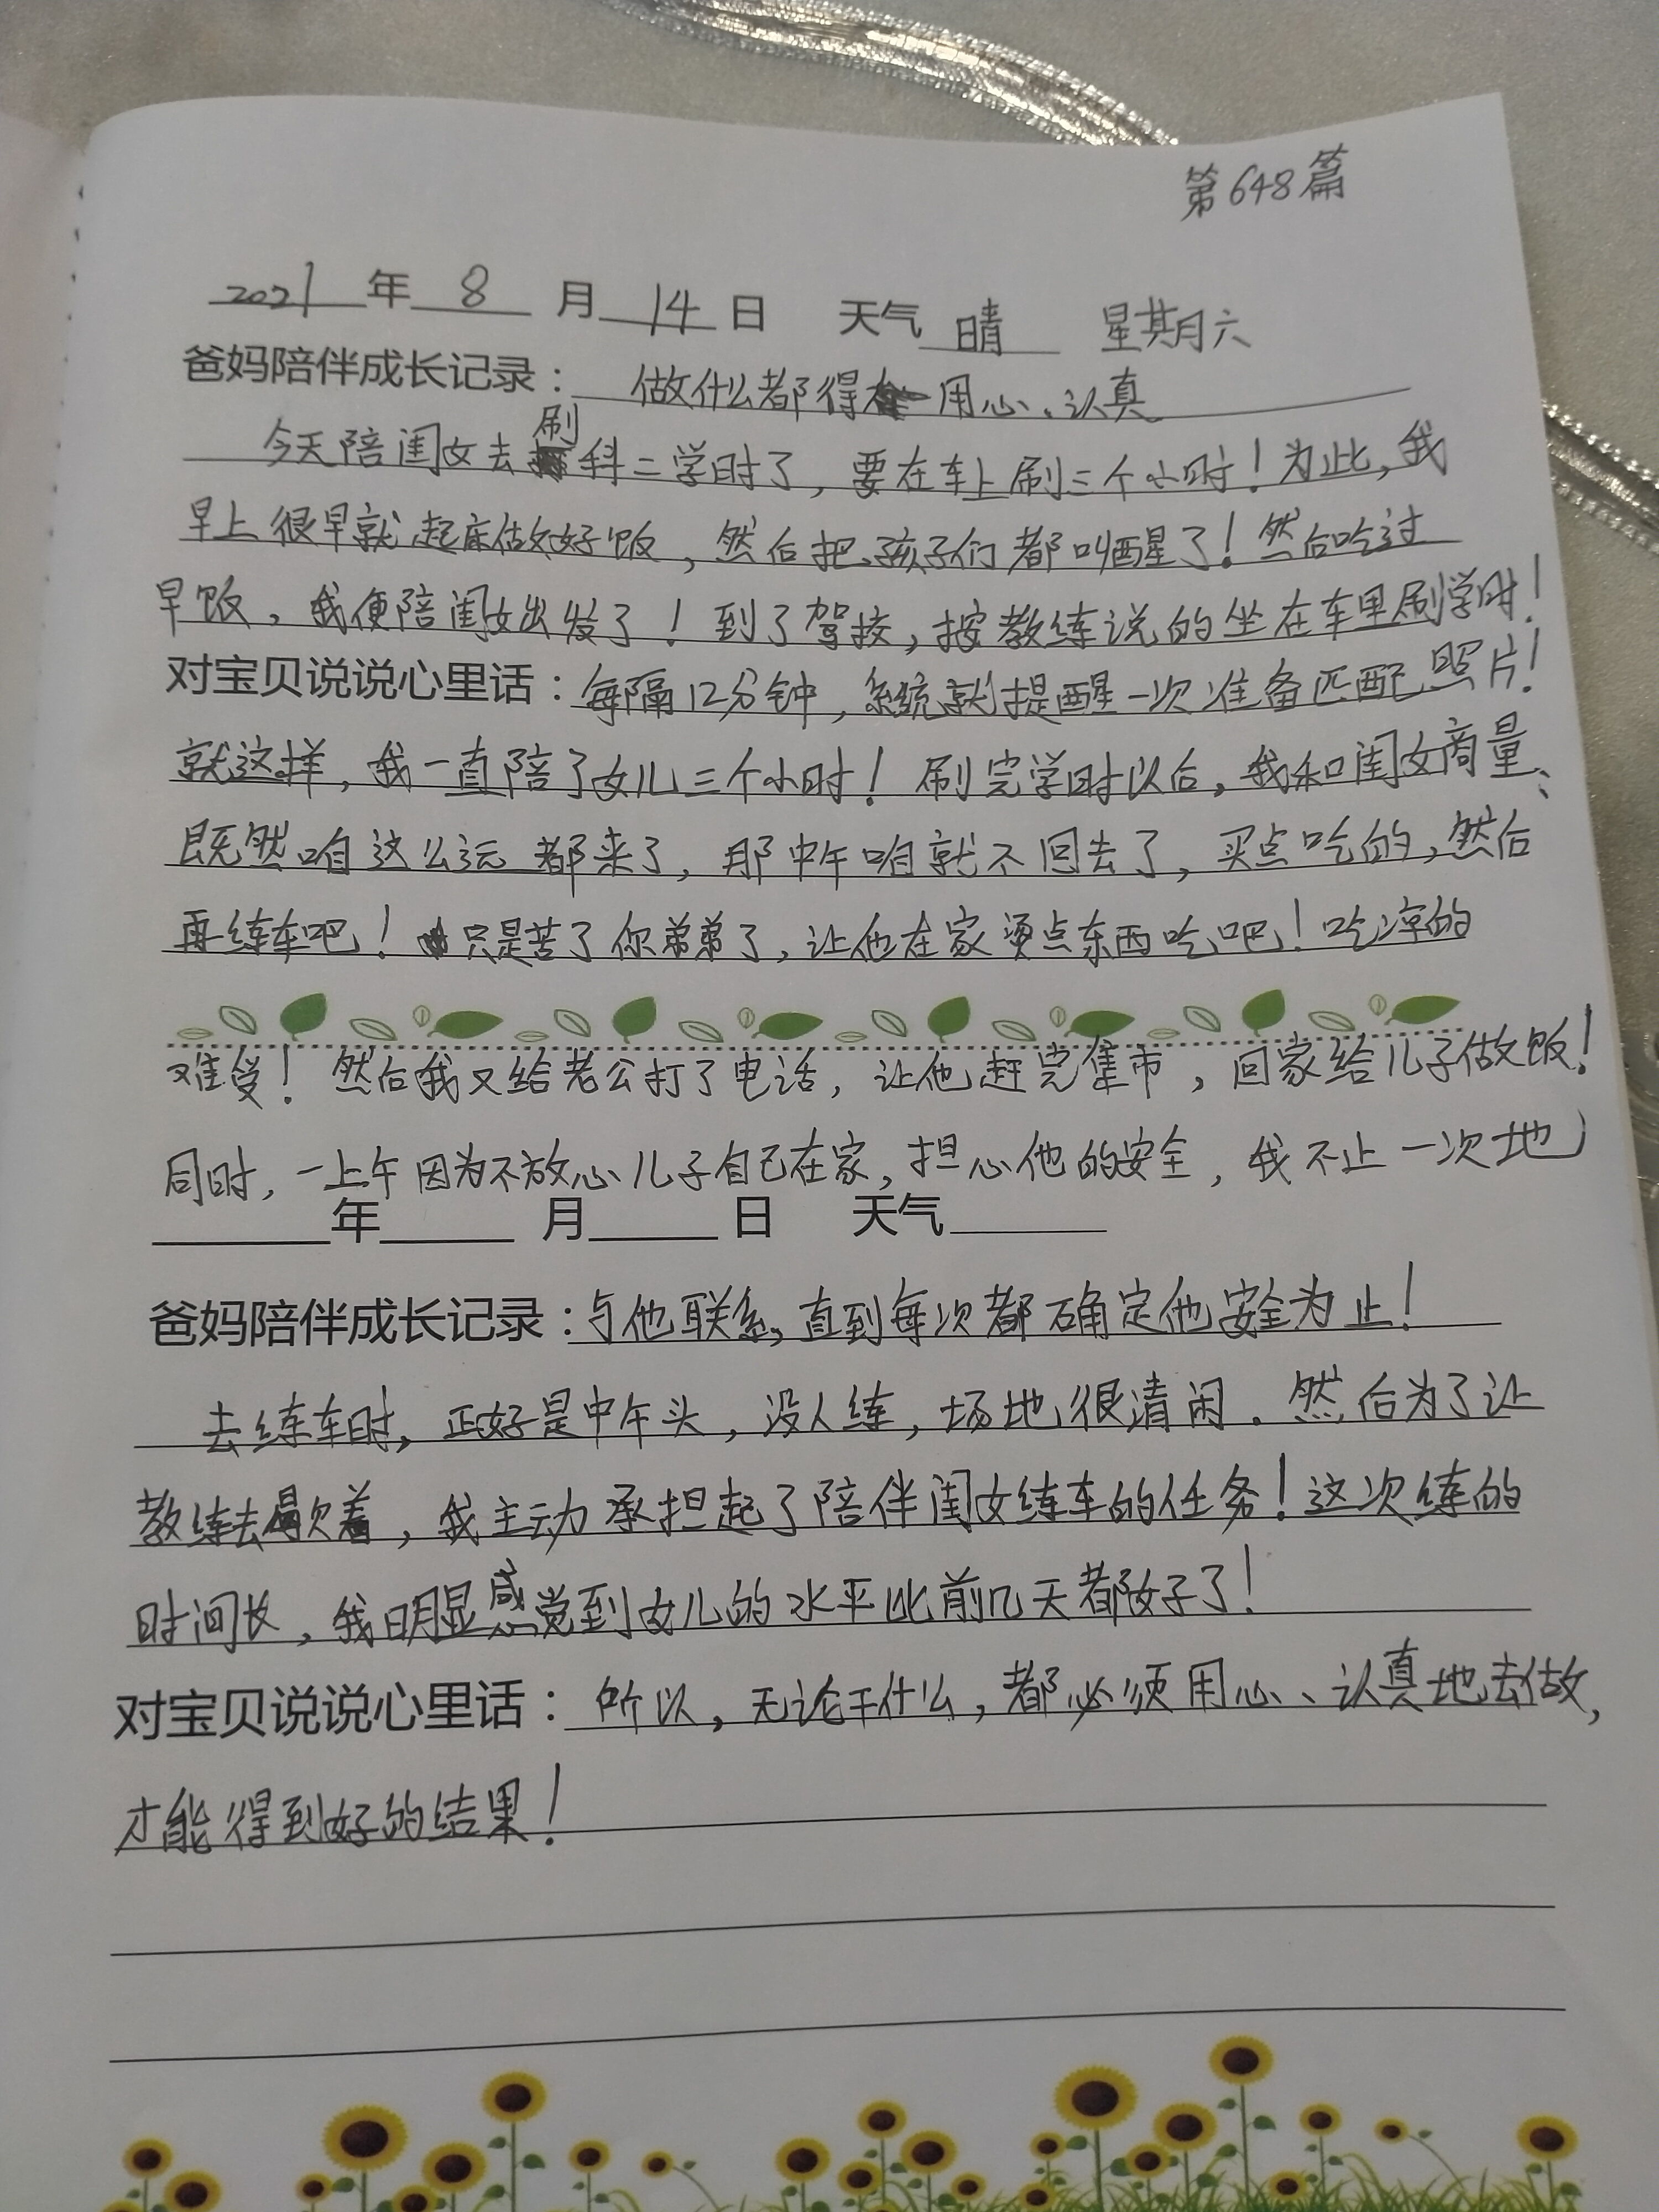 第648篇
2021年 8 月 14 日 天气 晴 星期六
爸妈陪伴成长记录：做什么都得用心、认真
今天陪闺女去刷科二学时了，要在车上刷三个小时！为此，我
早上很早就起床做好饭，然后把孩子们都叫醒了！然后吃过
早饭，我便陪闺女出发了！到了驾校，按教练说的坐在车里刷学时！
对宝贝说说心里话：每隔12分钟，系统就提醒一次准备匹配照片！
就这样，我一直陪了女儿三个小时！刷完学时以后，我和闺女商量：
既然咱这么远都来了，那中午咱就不回去了，买点吃的，然后
再练车吧！只是苦了你弟弟了，让他在家烫点东西吃吧！吃凉的
难受！然后我又给老公打了电话，让他赶完集市，回家给儿子做饭！
同时，一上午因为不放心儿子自己在家，担心他的安全，我不止一次地
年 月 日 天气
爸妈陪伴成长记录：与他联系，直到每次都确定他安全为止！
去练车时，正好是中午头，没人练，场地很清闲。然后为了让
教练去歇着，我主动承担起了陪伴闺女练车的任务！这次练的
时间长，我明显感觉到女儿的水平比前几天都好了！
对宝贝说说心里话：所以，无论干什么，都必须用心、认真地去做，
才能得到好的结果！